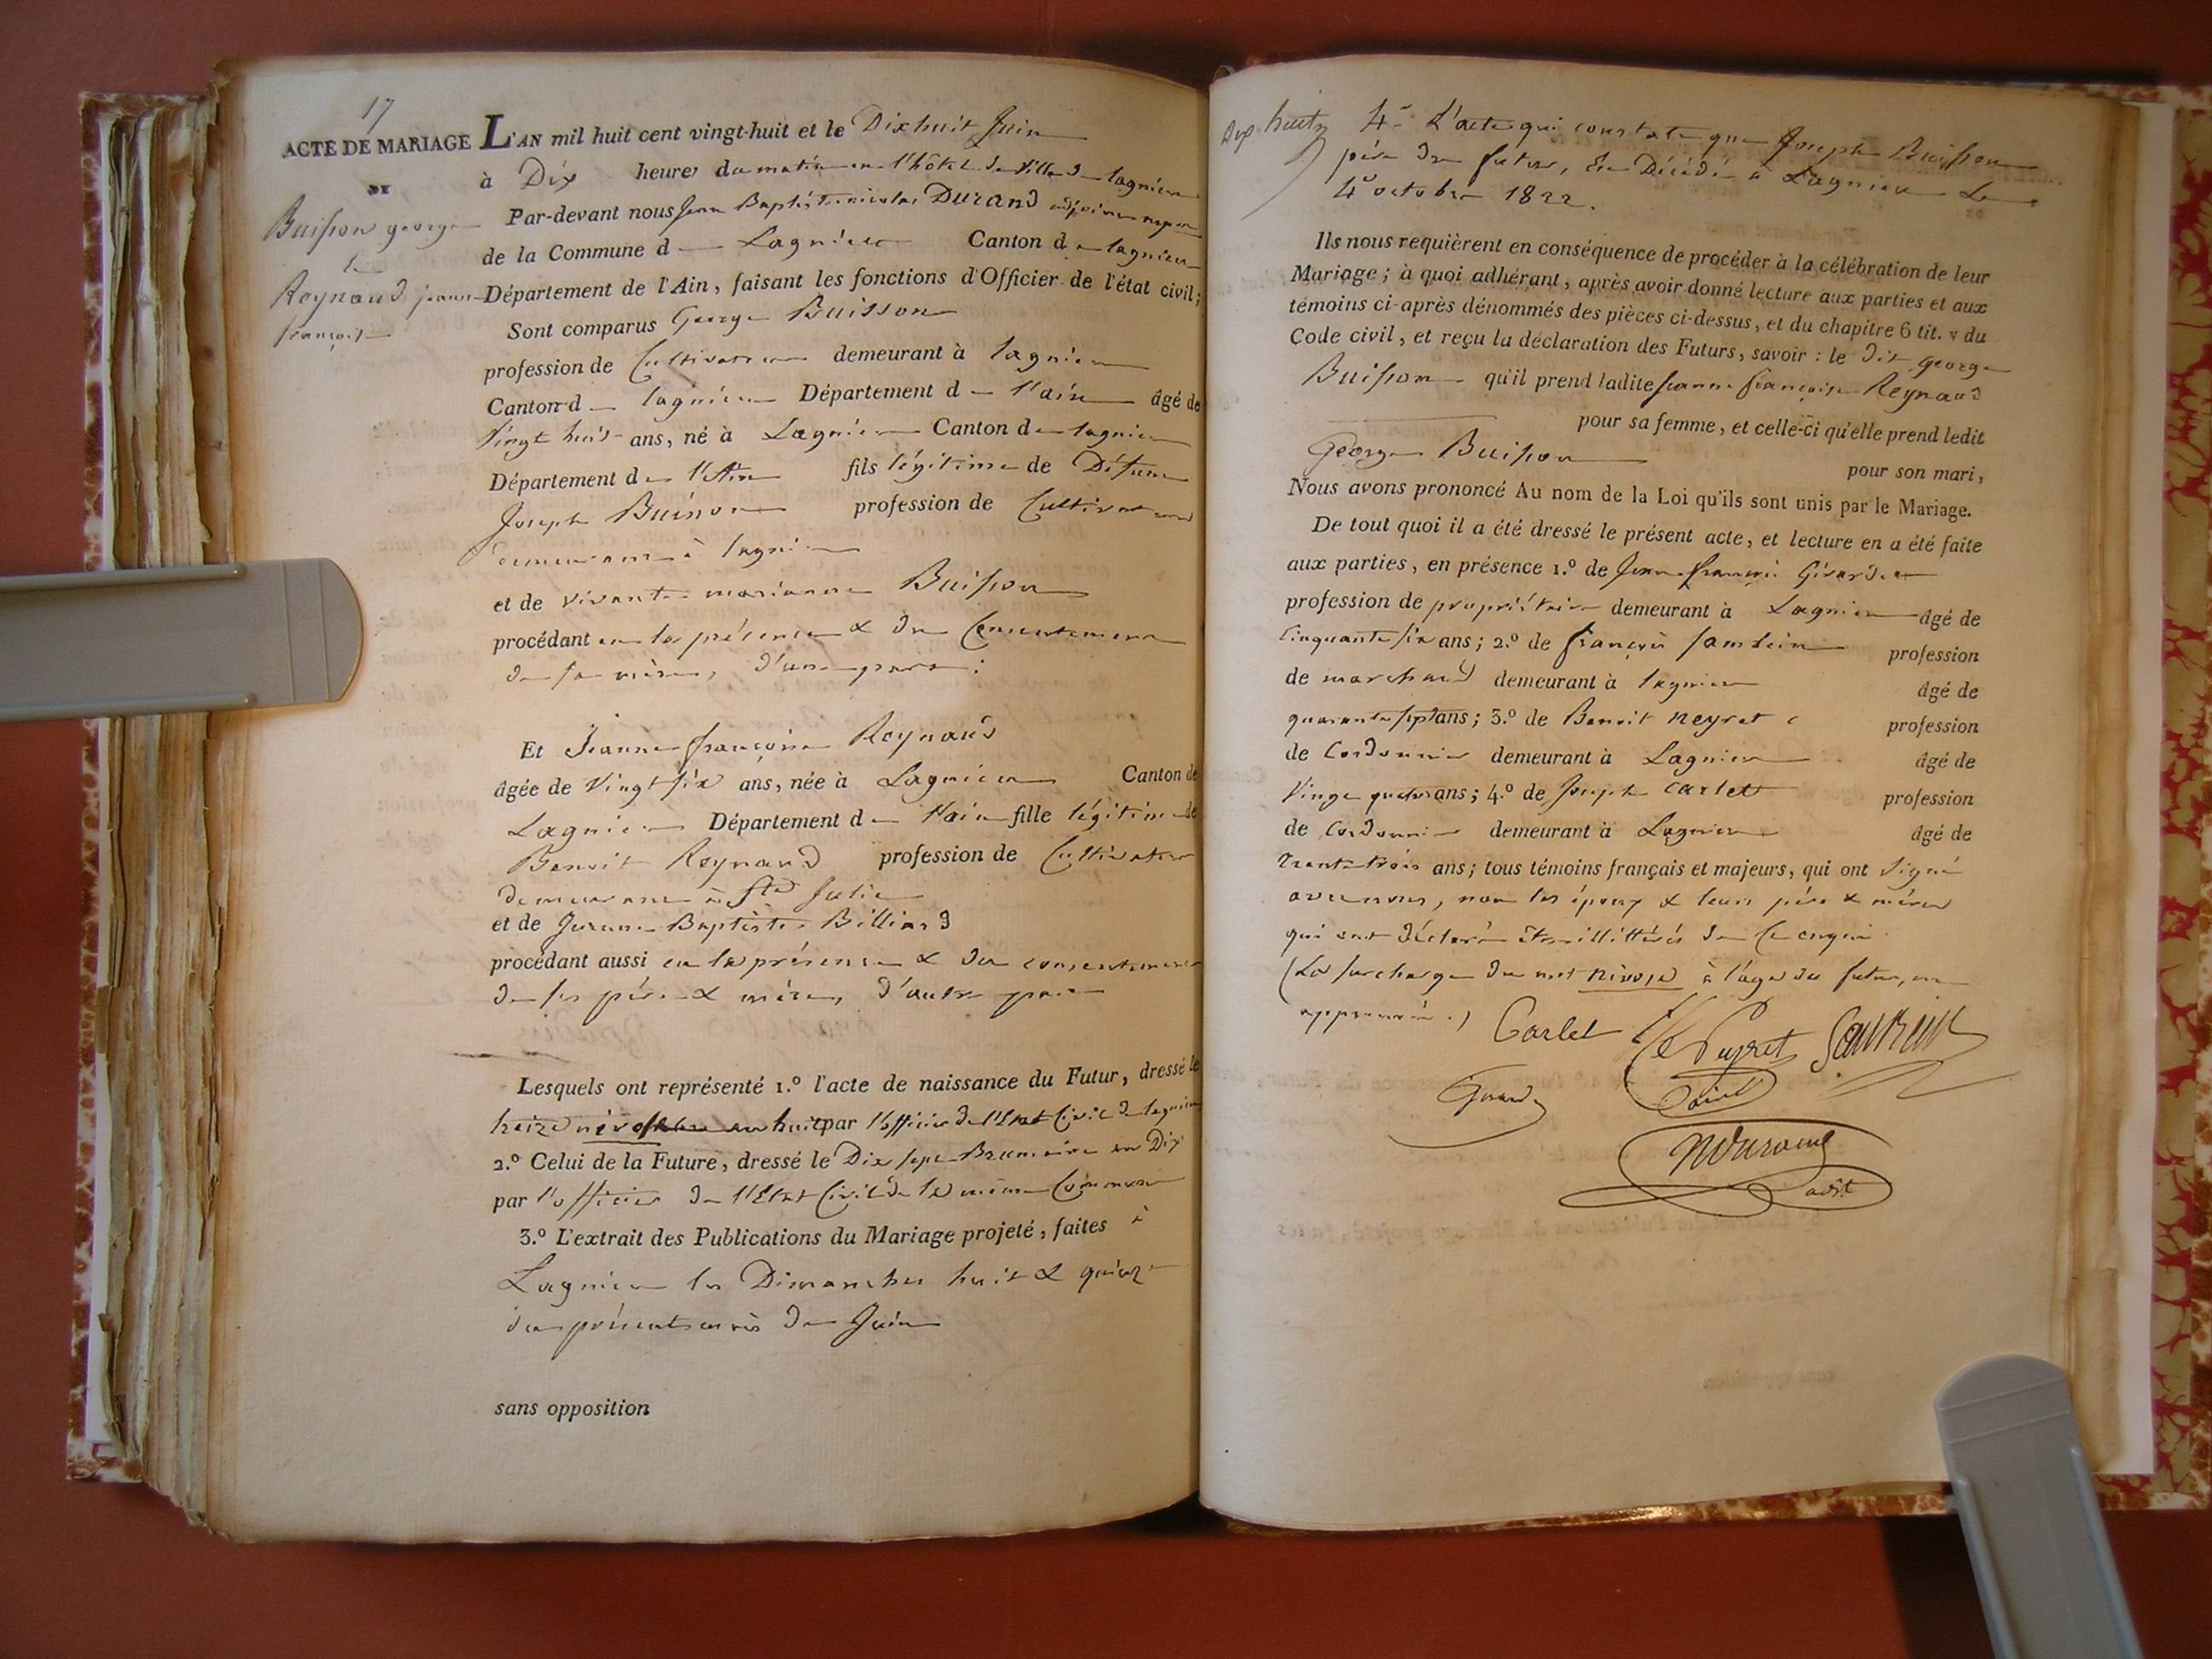 17
ACTE DE MARIAGE
DE
Buisson george
&
Reynaud jeanne
françoise
L'AN mil huit cent vingt-huit et le Dix huit Juin
à Dix heures du matin en l'hôtel de Ville de lagnieu
Par-devant nous Jean Baptiste nicolas Durand adjoint
de la Commune de Lagnieu Canton de lagnieu
Département de l'Ain, faisant les fonctions d'Officier de l'état civil;
Sont comparus George Buisson
profession de Cultivateur demeurant à lagnieu
Canton de lagnieu Département de l'ain âgé de
Vingt huit ans, né à Lagnieu Canton de lagnieu
Département de l'Ain fils légitime de Défunt
Joseph Buisson profession de Cultivateur
demeurant à lagnieu
et de vivante marianne Buisson
procédant en la présence & du Consentement
de sa mère, d'une part;
Et Jeanne françoise Reynaud
âgée de Vingt six ans, née à Lagnieu Canton de
Lagnieu Département de l'ain fille légitime de
Benoit Reynaud profession de Cultivateur
demeurant à Ste Julie
et de Jeanne Baptiste Billiard
procédant aussi en la présence & du consentement
de ses père & mère, d'autre part
Lesquels ont représenté 1.º l'acte de naissance du Futur, dressé le
treize nivose an huit par l'officier de l'Etat Civil de lagnieu
2.º Celui de la Future, dressé le Dix sept Brumaire an Dix
par l'officier de l'Etat Civil de la même Commune
3.º L'extrait des Publications du Mariage projeté, faites à
Lagnieu les Dimanches huit & quinze
du présent mois de Juin
sans opposition
Dix huit
4º L'acte qui constate que Joseph Buisson
père du futur, est Décédé à Lagnieu Le
4 octobre 1822.
Ils nous requièrent en conséquence de procéder à la célébration de leur
Mariage; à quoi adhérant, après avoir donné lecture aux parties et aux
témoins ci-après dénommés des pièces ci-dessus, et du chapitre 6 tit. v du
Code civil, et reçu la déclaration des Futurs, savoir : le dit george
Buisson qu'il prend ladite Jeanne françoise Reynaud
pour sa femme, et celle-ci qu'elle prend ledit
George Buisson
pour son mari,
Nous avons prononcé Au nom de la Loi qu'ils sont unis par le Mariage.
De tout quoi il a été dressé le présent acte, et lecture en a été faite
aux parties, en présence 1.º de Jean françois
profession de propriétaire demeurant à Lagnieu âgé de
Cinquante six ans; 2.º de françois profession
de marchand demeurant à lagnieu âgé de
quarante sept ans; 3.º de Benoit neyret profession
de Cordonnier demeurant à Lagnieu âgé de
Vingt quatre ans; 4.º de Joseph Carlet profession
de Cordonnier demeurant à Lagnieu âgé de
trente trois ans; tous témoins français et majeurs, qui ont signé
avec nous, non les époux & leurs père & mères
qui ont déclaré être illittérés de ce enquis
(La surcharge du mot nivose à l'age du futur, est
approuvée.)
Carlet
Neyret
Girard
NDurand
adjt